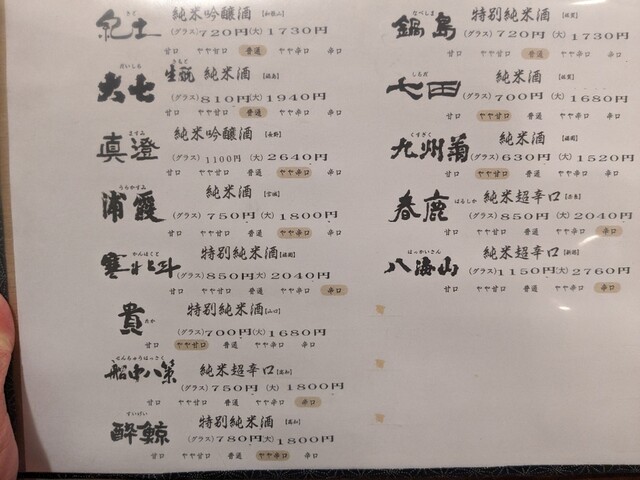 きど
紀土 純米吟醸酒【和歌山】
(グラス)720円(大)1730円
甘口 やや甘口 普通 やや辛口 辛口
だいしち きもと
大七 生酛 純米酒【福島】
(グラス)810円(大)1940円
甘口 やや甘口 普通 やや辛口 辛口
ますみ
真澄 純米吟醸酒【長野】
(グラス)1100円(大)2640円
甘口 やや甘口 普通 やや辛口 辛口
うらかすみ
浦霞 純米酒【宮城】
(グラス)750円(大)1800円
甘口 やや甘口 普通 やや辛口 辛口
かんほくと
寒北斗 特別純米酒【福岡】
(グラス)850円(大)2040円
甘口 やや甘口 普通 やや辛口 辛口
貴 たか 特別純米酒【山口】
(グラス)700円(大)1680円
甘口 やや甘口 普通 やや辛口 辛口
せんちゅうはっさく
船中八策 純米超辛口【高知】
(グラス)750円(大)1800円
甘口 やや甘口 普通 やや辛口 辛口
すいげい
酔鯨 特別純米酒【高知】
(グラス)780円(大)1800円
甘口 やや甘口 普通 やや辛口 辛口
なべしま
鍋島 特別純米酒【佐賀】
(グラス)720円(大)1730円
甘口 やや甘口 普通 やや辛口 辛口
しちだ
七田 純米酒【佐賀】
(グラス)700円(大)1680円
甘口 やや甘口 普通 やや辛口 辛口
くすぎく
九州菊 純米酒【福岡】
(グラス)630円(大)1520円
甘口 やや甘口 普通 やや辛口 辛口
春鹿 はるしか 純米超辛口【奈良】
(グラス)850円(大)2040円
甘口 やや甘口 普通 やや辛口 辛口
はっかいさん
八海山 純米超辛口【新潟】
(グラス)1150円(大)2760円
甘口 やや甘口 普通 やや辛口 辛口